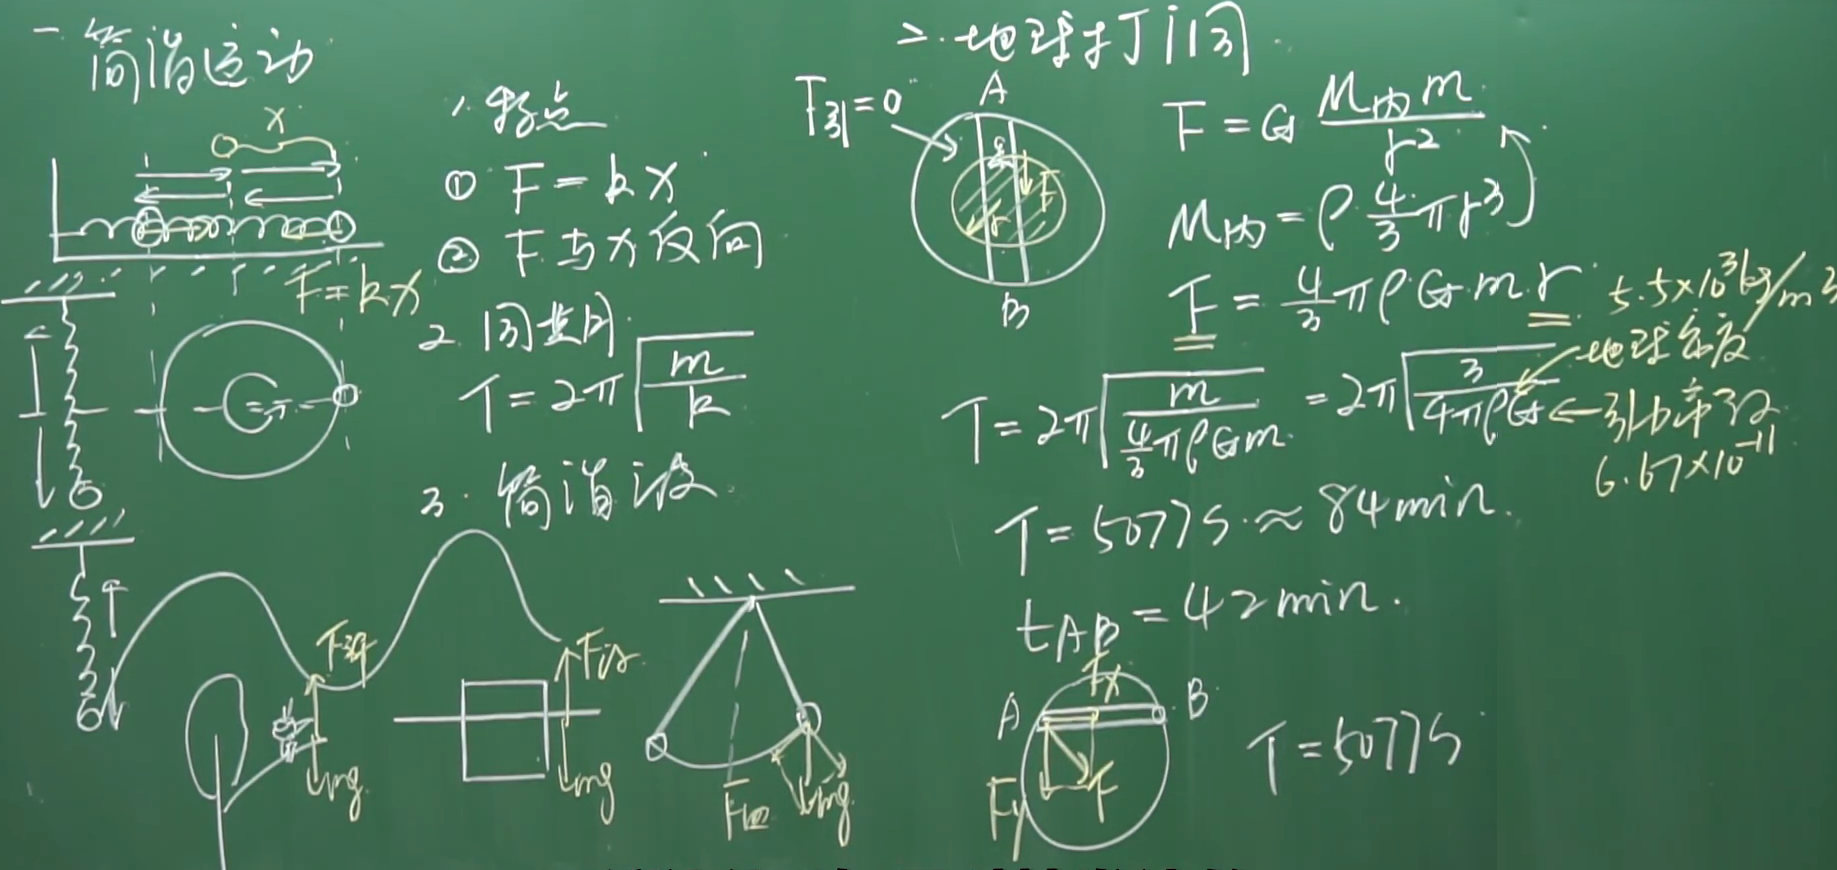 一 简谐运动
x
F=kx
1. 特点
① F=kx
② F与x反向
2. 周期
T=2π√(m/k)
3. 简谐波
F弹
mg
F浮
mg
F回
mg
二. 地球打洞
F引=0
A
F
r
B
F=G M内m/r²
M内=ρ·4/3πr³
F=4/3πρGmr
5.5×10³kg/m³
地球密度
T=2π√(m/(4/3πρGm))=2π√(3/(4πρG))
引力常数
6.67×10⁻¹¹
T=5077s≈84min.
tAB=42min.
Fx
A
B
Fy
F
T=5077s